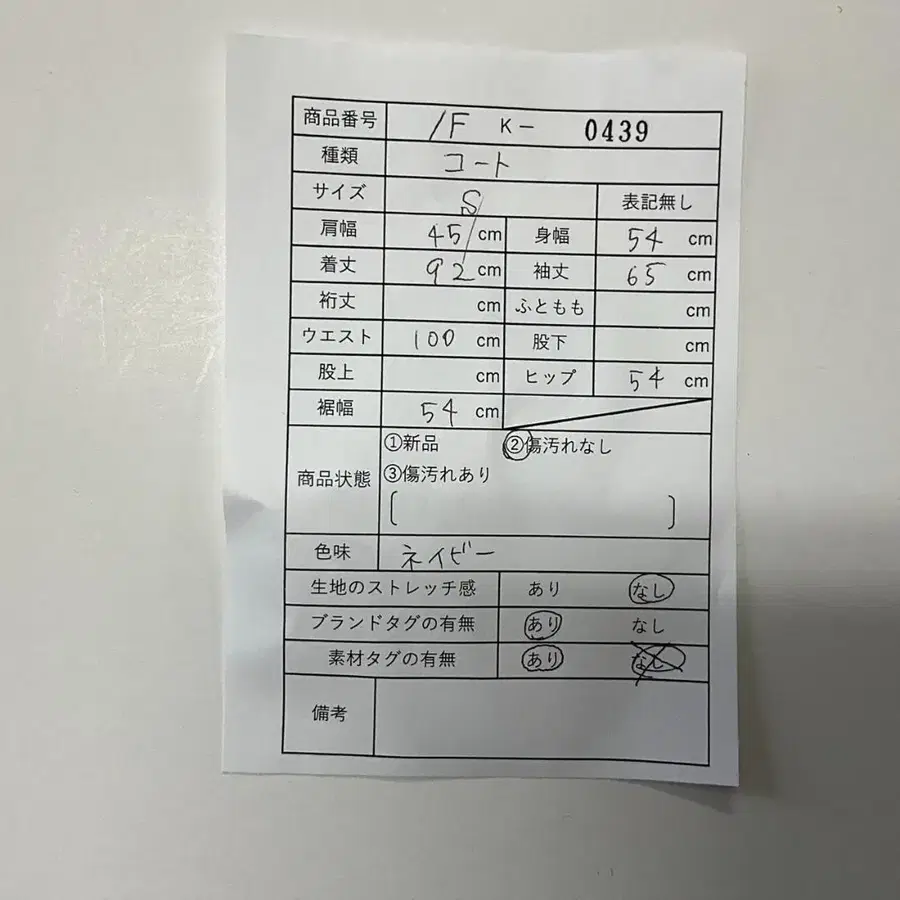 商品番号 /F K- 0439
種類 コート
サイズ S 表記無し
肩幅 45 cm 身幅 54 cm
着丈 92 cm 袖丈 65 cm
裄丈 cm ふともも cm
ウエスト 100 cm 股下 cm
股上 cm ヒップ 54 cm
裾幅 54 cm
商品状態 ①新品 ②傷汚れなし
③傷汚れあり
[ ]
色味 ネイビー
生地のストレッチ感 あり なし
ブランドタグの有無 あり なし
素材タグの有無 あり なし
備考